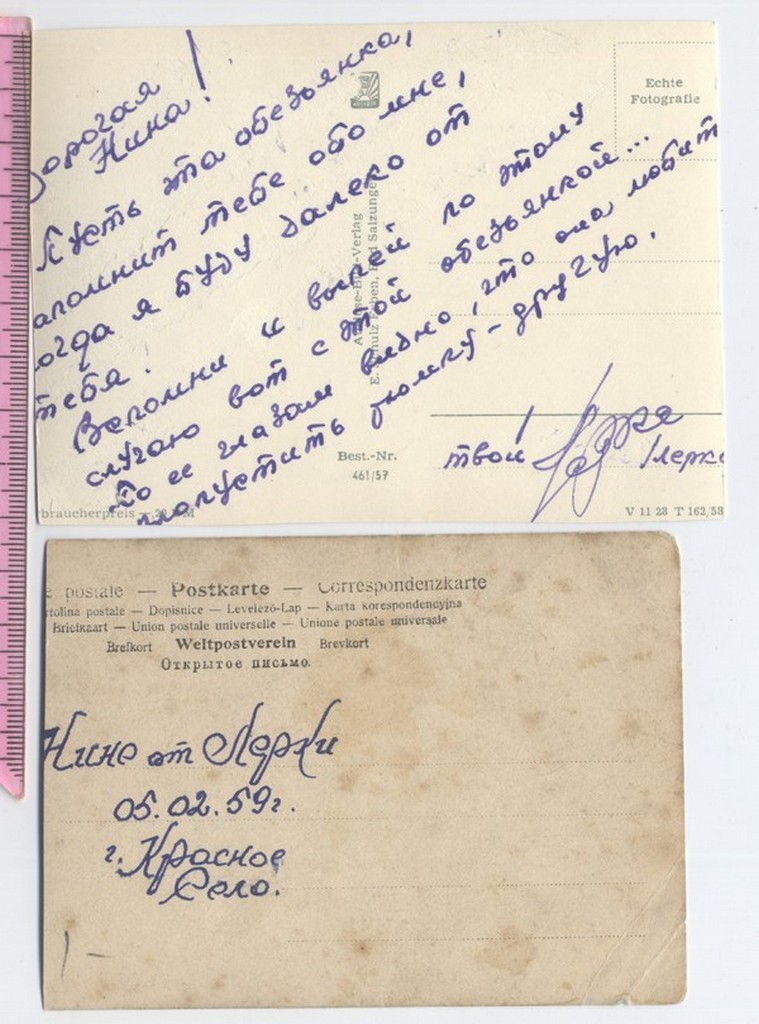 Дорогая
Нина!
Пусть эта обезьянка,
апомнит тебе обо мне,
огда я буду далеко от
тебя.
Вспомни и выпей по этому
случаю вот с этой обезьянкой...
По ее глазам видно, что она любит
пропустить рюмку-другую.
твой
Лерка
Echte
Fotografie
E. Schulz Erben, Bad Salzungen
Best.-Nr.
461/57
braucherpreis
V 11 28 T 162/58
e postale — Postkarte — Correspondenzkarte
rtolina postale — Dopisnice — Levelező-Lap — Karta korespondencyjna
Briefkaart — Union postale universelle — Unione postale universale
Brefkort Weltpostverein Brevkort
Открытое письмо.
Нине от Лерки
05.02.59г.
г. Красное
Село.